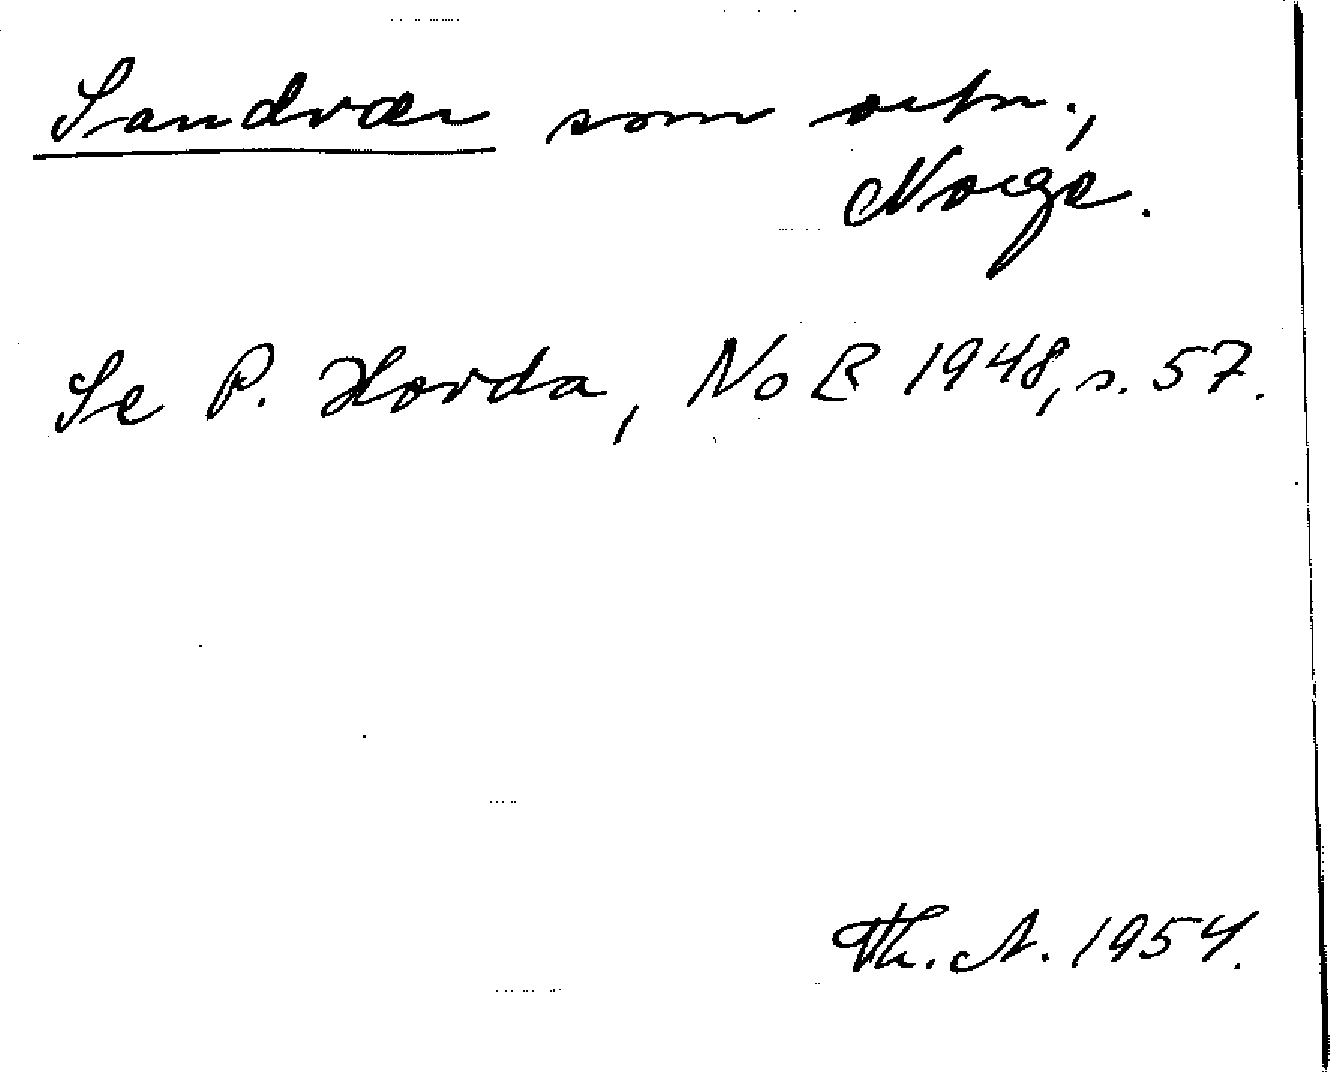 Sandvær som ortn.,
Norge.
Se P. Hovda, NoB 1948, s. 57.
Th. A. 1954.